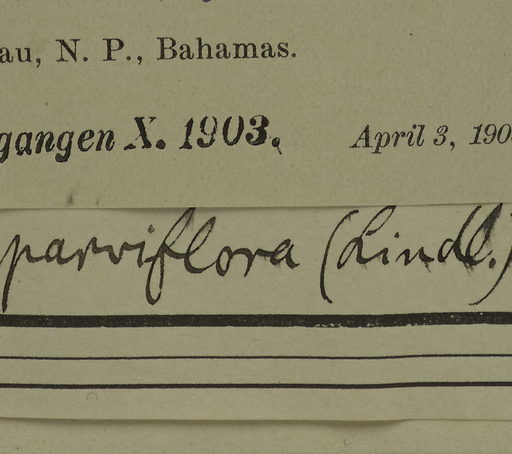 au, N. P., Bahamas.
gangen X. 1903. April 3, 190
parviflora (Lindl.)